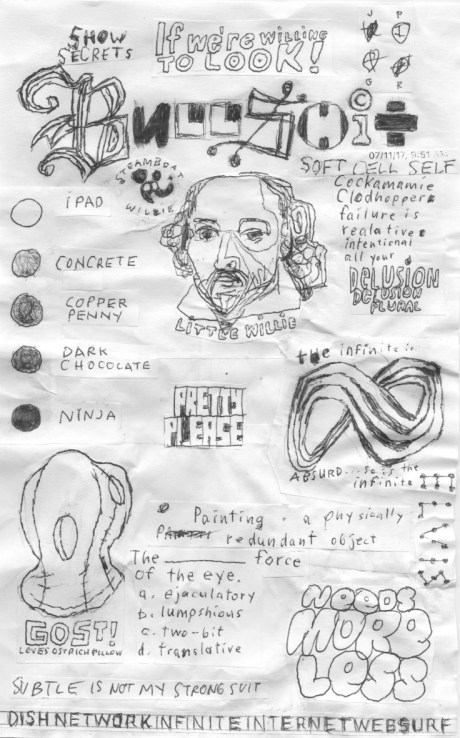 SHOW
SECRETS
If we're WiLLING
TO LOOK!
J P
G R
BullShit
©
07/11/17, 9:51
STEAMBOAT
WILLIE
SOFT CELL SELF
Cockamamie
Clodhopper
failure is
realative
intentional
all your
DELUSION
DELUSION
PLURAL
iPAD
CONCRETE
COPPER
PENNY
DARK
CHOCOLATE
NINJA
LITTLE WILLIE
the infinite is
ABSURD...so is the
infinite
PRETTY
PLEASE
Painting - a physically
redundant object
The ________ force
of the eye.
a. ejaculatory
b. lumpshious
c. two-bit
d. translative
GOST!
LOVES OSTRICH PILLOW
NEEDS
MORE
LESS
SUBTLE IS NOT MY STRONG SUIT
DISHNETWORKINFINITEINTERNETWEBSURF